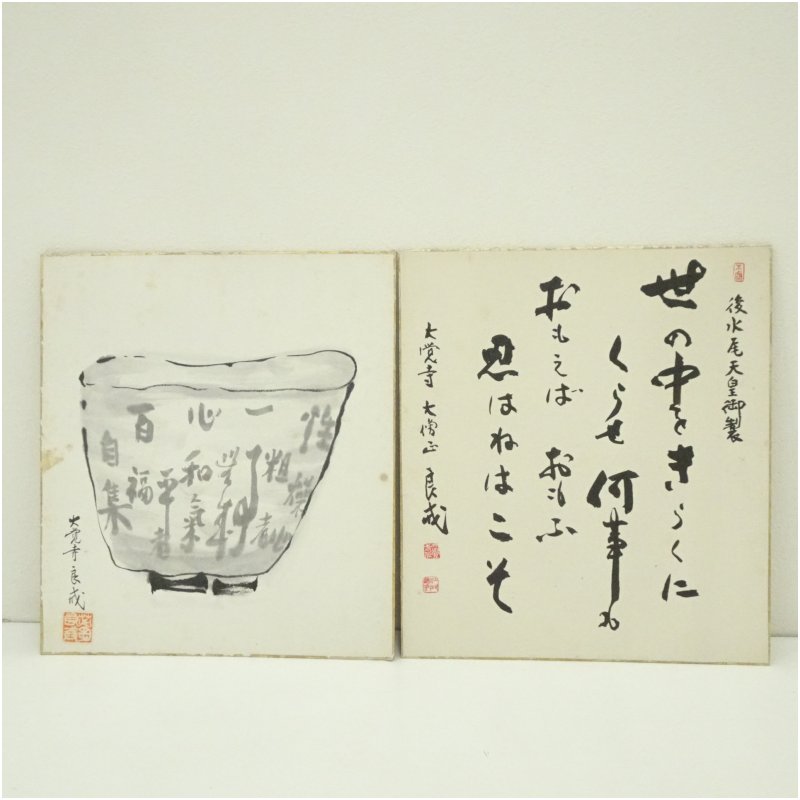 後水尾天皇御製
世の中をきらくに
くらせ何事も
おもえば おもふ
思はねはこそ
大覚寺 大僧正 良戒
性燥心
粗者
一
心和氣
平者
百福
自集
大覚寺良戒